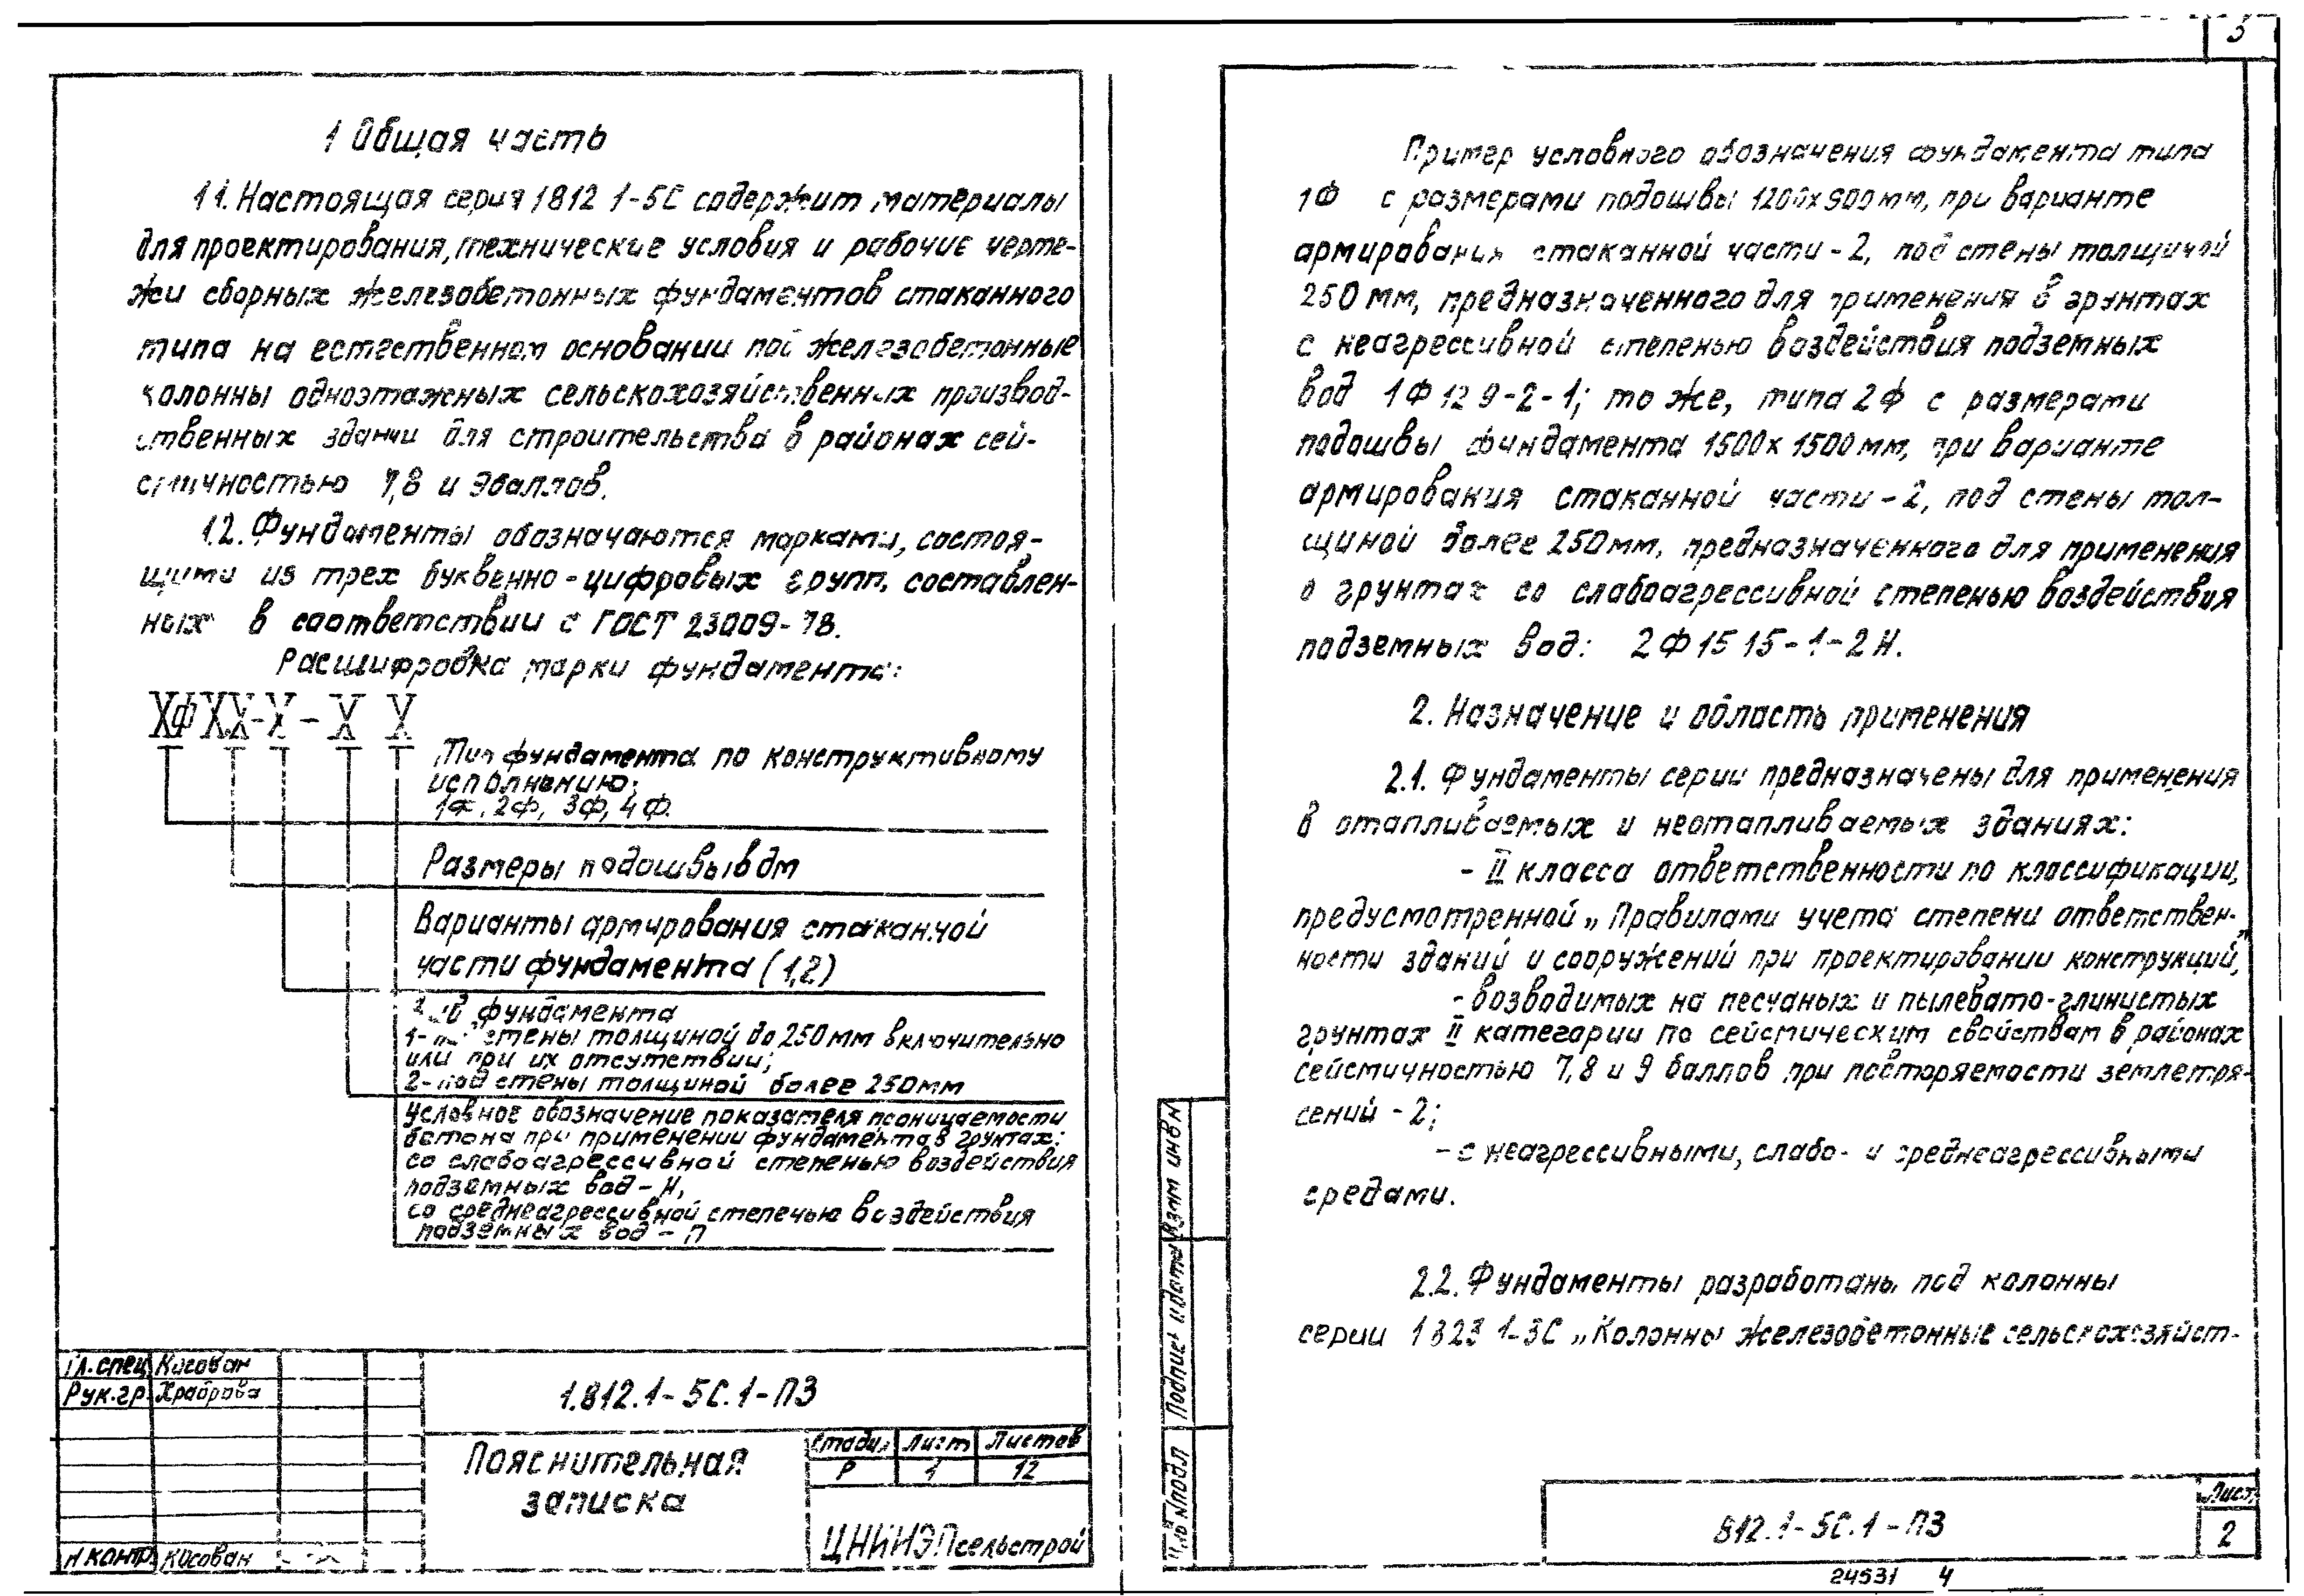 3
1 Общая часть
1 1. Настоящая серия 1812 1-5С содержит материалы
для проектирования, технические условия и рабочие черте-
жи сборных железобетонных фундаментов стаканного
типа на естественном основании под железобетонные
колонны одноэтажных сельскохозяйственных производ-
ственных зданий для строительства в районах сей-
смичностью 7,8 и 9 баллов.
1.2. Фундаменты обозначаются марками, состоя-
щими из трех буквенно-цифровых групп, составлен-
ных в соответствии с ГОСТ 23009-78.
Расшифровка марки фундамента:
ХФ ХХ-Х-Х Х
Тип фундамента по конструктивному
исполнению:
1Ф, 2Ф, 3Ф, 4Ф.
Размеры подошвы в дм
Варианты армирования стаканной
части фундамента (1,2)
фундамента
1- под стены толщиной до 250 мм включительно
или при их отсутствии;
2- под стены толщиной более 250 мм
Условное обозначение показателя проницаемости
бетона при применении фундамента в грунтах:
со слабоагрессивной степенью воздействия
подземных вод - Н,
со среднеагрессивной степенью воздействия
подземных вод - П
Гл. спец Косован
Рук. гр. Храброва
Н контр. Косован
1.812.1-5С.1-ПЗ
Пояснительная
записка
Стадия Лист Листов
Р 1 12
ЦНИИЭПсельстрой
Пример условного обозначения фундамента типа
1Ф с размерами подошвы 1200х900 мм, при варианте
армирования стаканной части - 2, под стены толщиной
250 мм, предназначенного для применения в грунтах
с неагрессивной степенью воздействия подземных
вод 1Ф 12 9-2-1; то же, типа 2Ф с размерами
подошвы фундамента 1500х1500 мм, при варианте
армирования стаканной части - 2, под стены тол-
щиной более 250 мм, предназначенного для применения
в грунтах со слабоагрессивной степенью воздействия
подземных вод: 2Ф 15 15-1-2Н.
2. Назначение и область применения
2.1. Фундаменты серии предназначены для применения
в отапливаемых и неотапливаемых зданиях:
- II класса ответственности по классификации,
предусмотренной „Правилами учета степени ответствен-
ности зданий и сооружений при проектировании конструкций",
- возводимых на песчаных и пылевато-глинистых
грунтах II категории по сейсмическим свойствам в районах
сейсмичностью 7, 8 и 9 баллов при повторяемости землетря-
сений - 2;
- с неагрессивными, слабо- и среднеагрессивными
средами.
2.2. Фундаменты разработаны под колонны
серии 1 823 1-3С „Колонны железобетонные сельскохозяйст-
Взам инв N
Подпись и дата
N подл
812.1-5С.1-ПЗ
Лист
2
24531 4